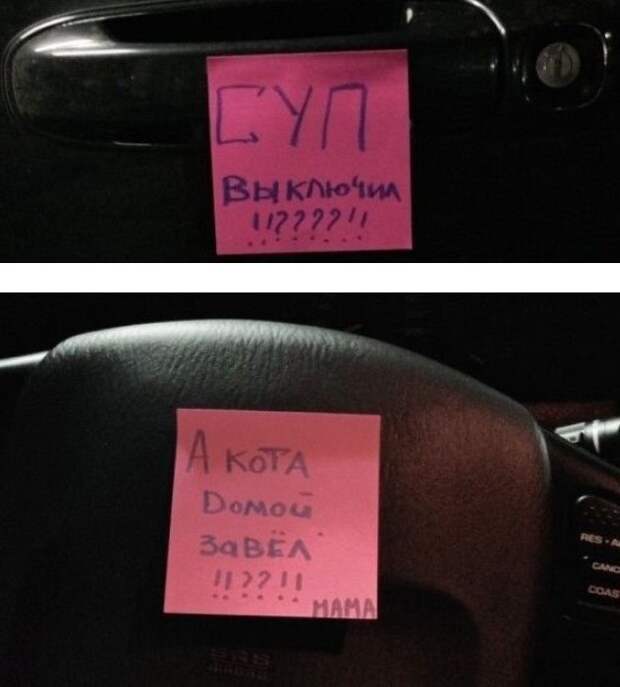 СУП
ВЫКЛЮЧИЛ
!!????!!
А КОТА
ДОМОЙ
ЗАВЁЛ
!!??!!
МАМА
RES
CANC
COAS
SRS